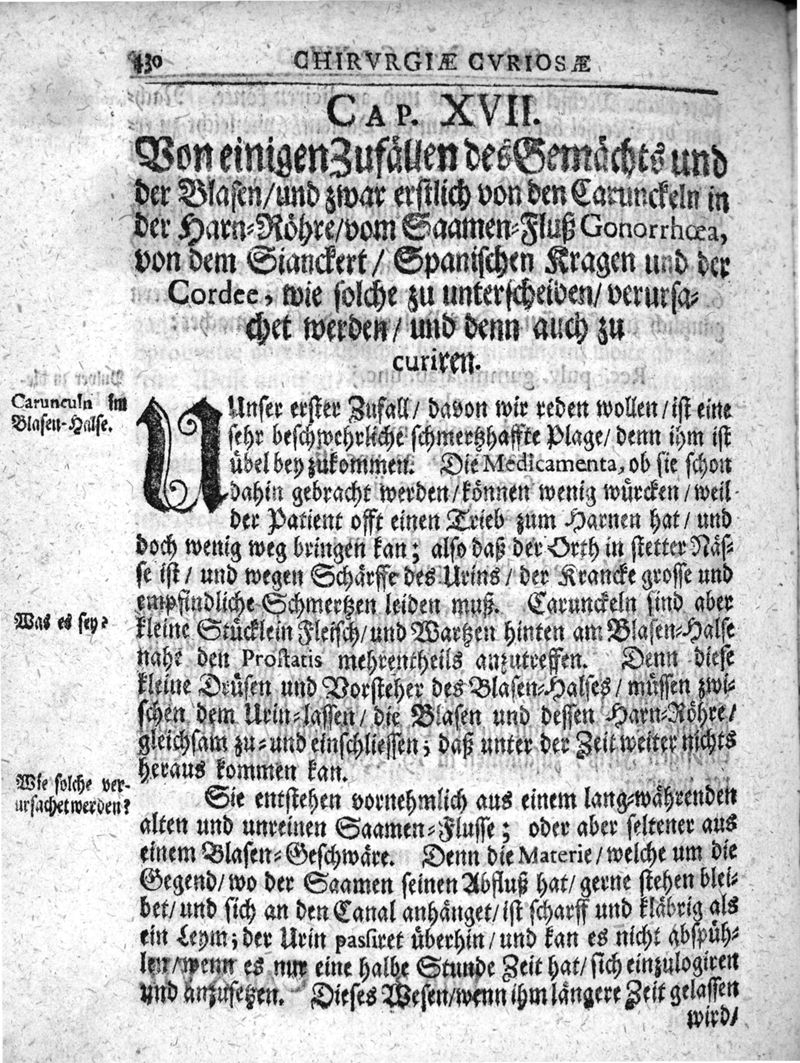 430 CHIRVRGIÆ CVRIOSÆ
CAP. XVII.
Von einigen Zufällen des Gemächts und
der Blasen/und zwar erstlich von den Carunckeln in
der Harn-Röhre/vom Saamen-Fluß Gonorrhœa,
von dem Sianckert/ Spanischen Kragen und der
Cordee, wie solche zu unterscheiden/ verursa-
chet werden/ und denn auch zu
curiren.
Carunculn im
Blasen-Halse.
UUnser erster Zufall/ davon wir reden wollen/ist eine
sehr beschwehrliche schmertzhaffte Plage/ denn ihm ist
übel bey zukommen. Die Medicamenta, ob sie schon
dahin gebracht werden/können wenig würcken/ weil
der Patient offt einen Trieb zum Harnen hat/ und
doch wenig weg bringen kan; also daß der Orth in stetter Näs-
se ist/ und wegen Schärffe des Urins/ der Krancke grosse und
empfindliche Schmertzen leiden muß. Carunckeln sind aber
Was es sey?
kleine Stücklein Fleisch/und Wartzen hinten am Blasen-Halse
nahe den Prostatis mehrentheils anzutreffen. Denn diese
kleine Drüsen und Vorsteher des Blasen-Halses/ müssen zwi-
schen dem Urin-lassen/ die Blasen und dessen Harn-Röhre/
gleichsam zu-und einschliessen; daß unter der Zeit weiter nichts
heraus kommen kan.
Wie solche ver-
ursachet werden?
Sie entstehen vornehmlich aus einem lang-währenden
alten und unreinen Saamen-Flusse; oder aber seltener aus
einem Blasen-Geschwäre. Denn die Materie/welche um die
Gegend/wo der Saamen seinen Abfluß hat/ gerne stehen blei-
bet/und sich an den Canal anhänget/ist scharff und kläbrig als
ein Leym; der Urin passiret überhin/ und kan es nicht abspüh-
len/wenn es nur eine halbe Stunde Zeit hat/ sich einzulogiren
und anzusetzen. Dieses Wesen/wenn ihm längere Zeit gelassen
wird/